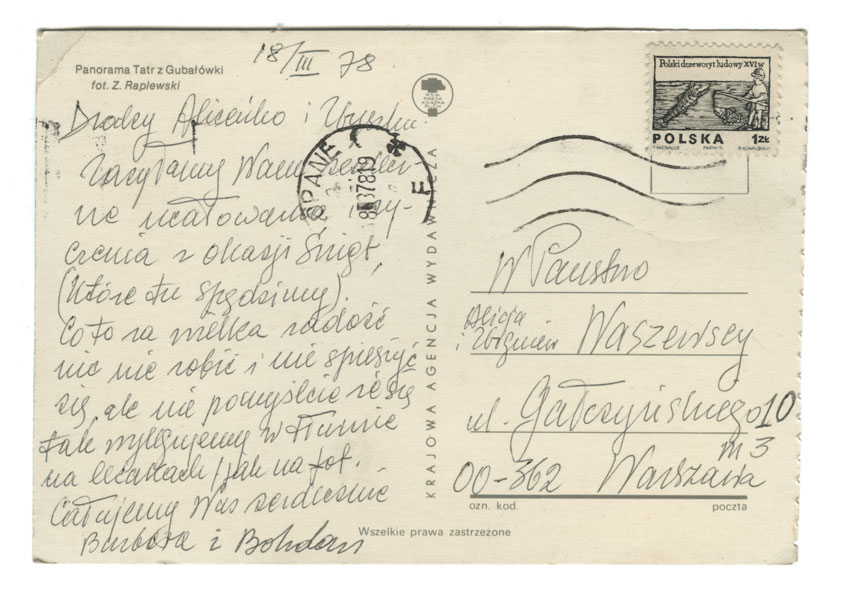 Panorama Tatr z Gubałówki
fot. Z. Raplewski
18/III 78
Drodzy Aliceńko i
Zasyłamy Wam serdecz-
ne ucałowania, ży-
czenia z okazji Świąt,
(które tu spędzimy).
Co to za wielka radość
nic nie robić i nie spieszyć
się, ale nie pomyślcie że się
tak wylegujemy w tłumie
na leżakach jak na fot.
Całujemy Was serdecznie
Barbara i Bohdan
KRAJOWA AGENCJA WYDAWNICZA
Wszelkie prawa zastrzeżone
Polski drzeworyt ludowy XVI w
POLSKA 1ZŁ
PANE
W Państwo
Alicja
i Zbigniew Waszewscy
ul. Gałczyńskiego 10
m 3
00-362 Warszawa
ozn. kod. poczta